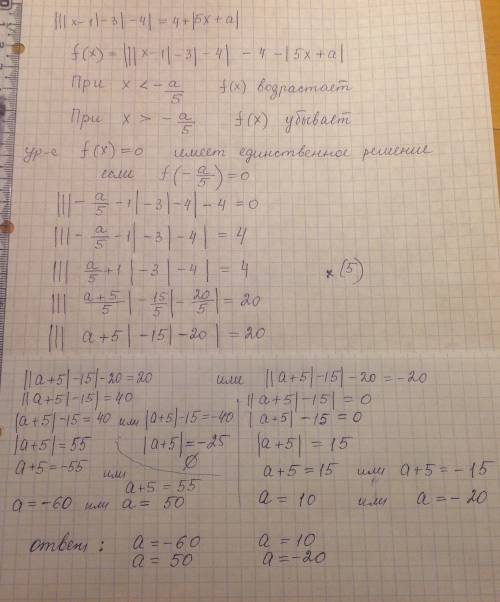 |||x-1|-3|-4| = 4+|5x+a|
f(x) = |||x-1|-3|-4| - 4 - |5x+a|
При x < -a/5 f(x) возрастает
При x > -a/5 f(x) убывает
ур-е f(x)=0 имеет единственное решение
если f(-a/5)=0
|||-a/5-1|-3|-4|-4=0
|||-a/5-1|-3|-4| = 4
|||a/5+1|-3|-4| = 4 ×(5)
|||(a+5)/5|-15/5|-20/5| = 20
|||a+5|-15|-20| = 20
||a+5|-15|-20=20 или ||a+5|-15|-20=-20
||a+5|-15|=40
|a+5|-15=40 или |a+5|-15=-40
|a+5|=55 |a+5|=-25
∅
a+5=-55 или
a+5=55
a=-60 или a=50
||a+5|-15|=0
|a+5|-15=0
|a+5|=15
a+5=15 или a+5=-15
a=10 или a=-20
ответ: a=-60 a=10
a=50 a=-20